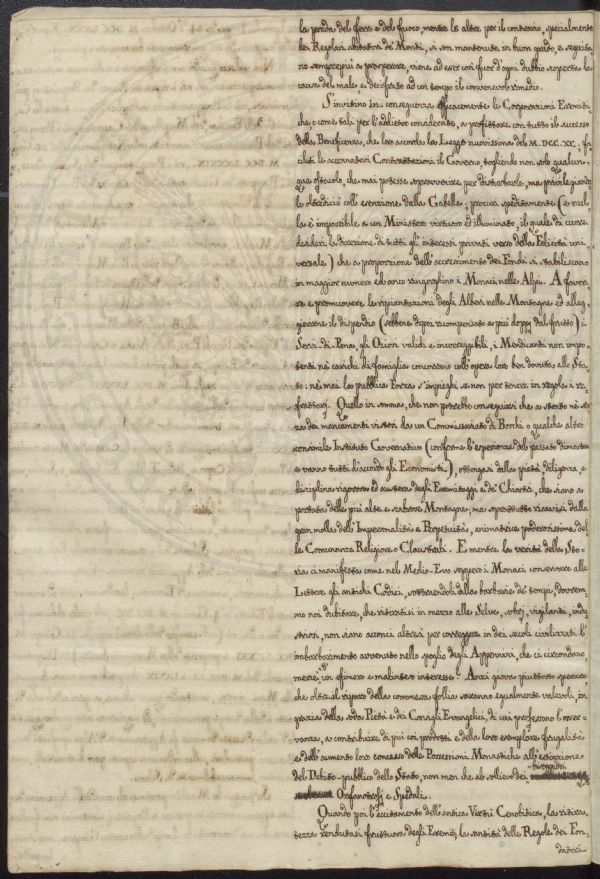 la preda del ferro e del fuoco, mentre le altre per il contrario, specialmente
dei Regolari abitatori de' Monti, si son mantenute in buon grado, e seguita
no semprepiù a prosperare, viene ad esser così fuor d'ogni dubbio scoperta la
causa del male, e decifrato ad un tempo il convenevol rimedio.
S'invitino in conseguenza efficacemente le Corporazioni Eremiti
che, o come tali per l'addietro considerate, a profittare con tutto il successo
della Beneficenza, che loro accorda la Legge novissima del M. DCC. XC. fa
ciliti le accennatevi Contrattazioni il Governo, togliendo non solo qualun
que ostacolo, che mai potesse sopravvenire per disturbarle, ma privilegiando
le oltrediciò coll'esenzione dalla Gabella; procuri speditamente (e nul
la è impossibile a un Ministero virtuoso ed illuminato, il quale di cuore
desideri la direzione di tutti gl'interessi privati verso della Felicità uni
versale) che a proporzione dell'accrescimento dei Fondi si stabiliscano
in maggior numero ed anco rinforzino i Monaci nelle Alpi. A favori
re e promuovere le ripiantazioni degli Alberi nelle Montagne ed alleg
gierirne il dispendio (sebbene dipoi ricompensato a più doppj dal frutto) i
Servi di Pena, gli Oziosi validi e incorreggibili, i Mendicanti non impo
tenti nè carichi di famiglia concorrano coll'opera loro ben dovuta allo Sta
to: nè mai la pubblica Forza s'impieghi se non per tenere in regola i re
frattarj. Quello in somma, che non potrebbe conseguirsi che a stento nè sen
za dei mancamenti vistosi da un Commissariato di Boschi o qualche altro
consimile Instituto Governativo (conforme l'esperienza del passato dimostra
e vanno tutti d'accordo gli Economisti), ottengasi dalla pietà, diligenza, e
disciplina rigorosa ed austera degli Eremitaggi e de' Chiostri, che siano a
portata delle più alte e scabrose Montagne, ma soprattutto ricavisi dalla
gran molla dell'Impersonalità e Perpetuità, animatrice poderosissima del
le Comunanze Religiose o Claustrali. E mentre la verità della Sto
ria ci manifesta come nel Medio-Evo seppero i Monaci conservare alle
Lettere gli antichi Codici, sottraendoli dalla barbarie de' tempi, dovrem
mo noi dubitare, che ritiratisi in mezzo alle Selve, sobrj, vigilanti, indu
striosi, non siano acconci altresì per correggere in dei secoli civilizzati l'
imbarbarimento avvenuto nello spoglio degli Appennini, che ci circondano,
mercè d'un efimero e malinteso interesse? Anzi giova piuttosto sperare,
che oltre al riparo della commessa follia saranno egualmente valevoli, in
grazia della soda Pietà e dei Consigli Evangelici, di cui professano l'osser
vanza, a contribuire di più coi prodotti e della loro esemplare frugalità
e dell'aumento loro concesso delle Possessioni Monastiche all'estinzione
del Debito-pubblico dello Stato, non men che al sollievo dei bisognosi
Orfanotrofj e Spedali.
Quando poi l'eccitamento dell'antica Virtù Cenobitica, la ritira
tezza rendutasi fruttuosa degli Eremi, la santità delle Regole dei Fon
datori